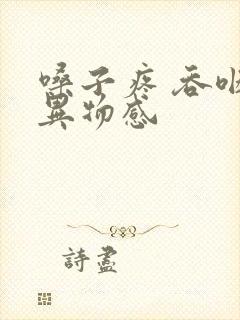 嗓子疼 吞咽
異物感
詩盡